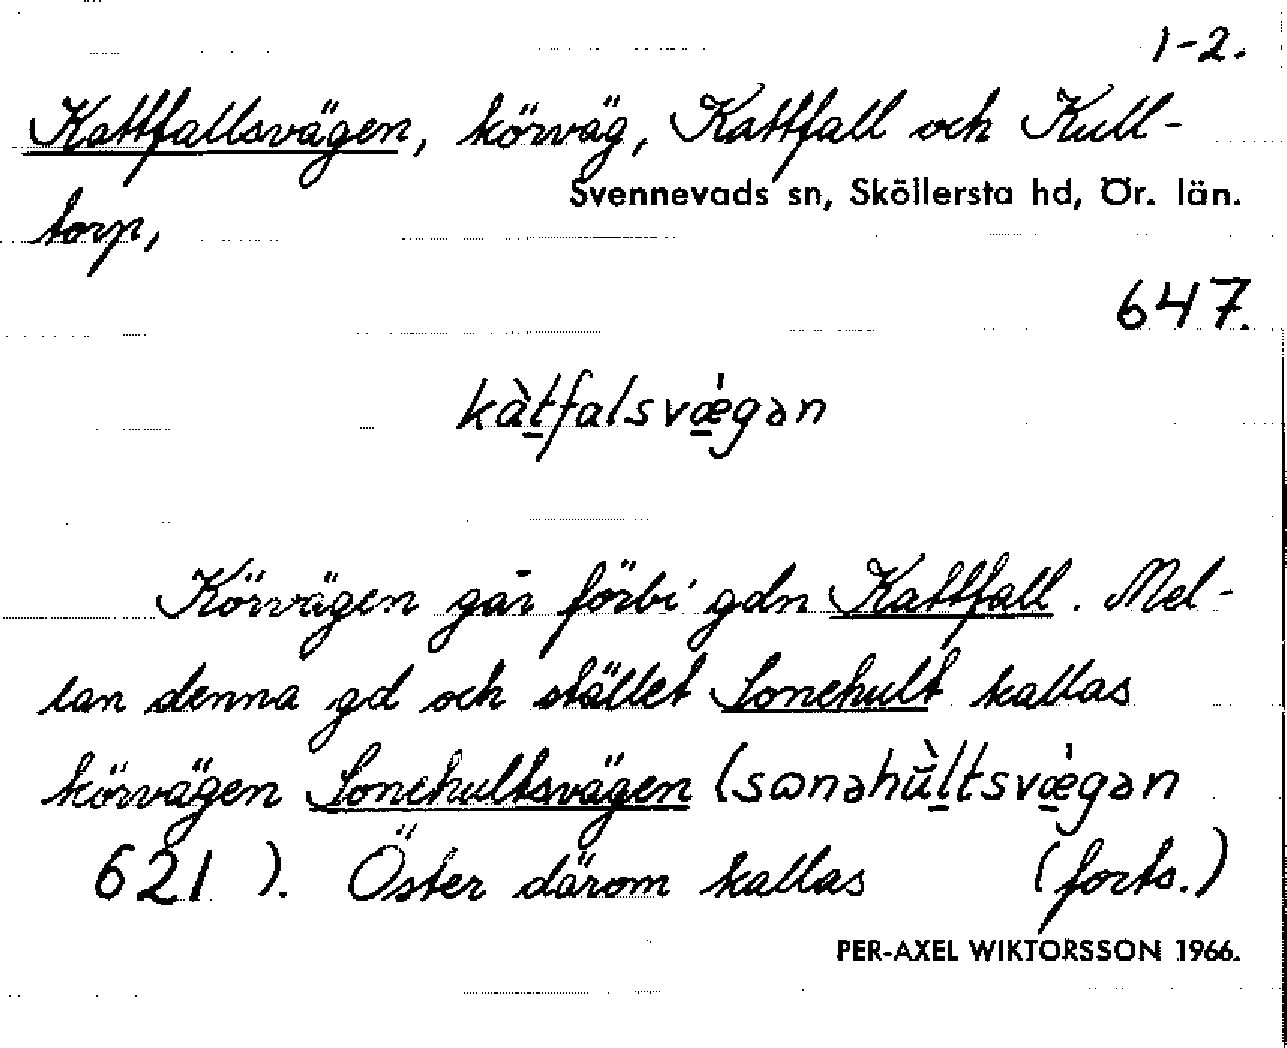 1-2.
Kattfallsvägen, körväg, Kattfall och Kull-
Svennevads sn, Sköllersta hd, Ör. län.
torp,
647.
kàt̲falsvæ̲̀gən
Körvägen går förbi gdn Kattfall. Mel-
lan denna gd och stället Sonehult kallas
körvägen Sonehultsvägen (sɷnəhùl̲tsvæ̲̀gən
621). Öster därom kallas (forts.)
PER-AXEL WIKTORSSON 1966.